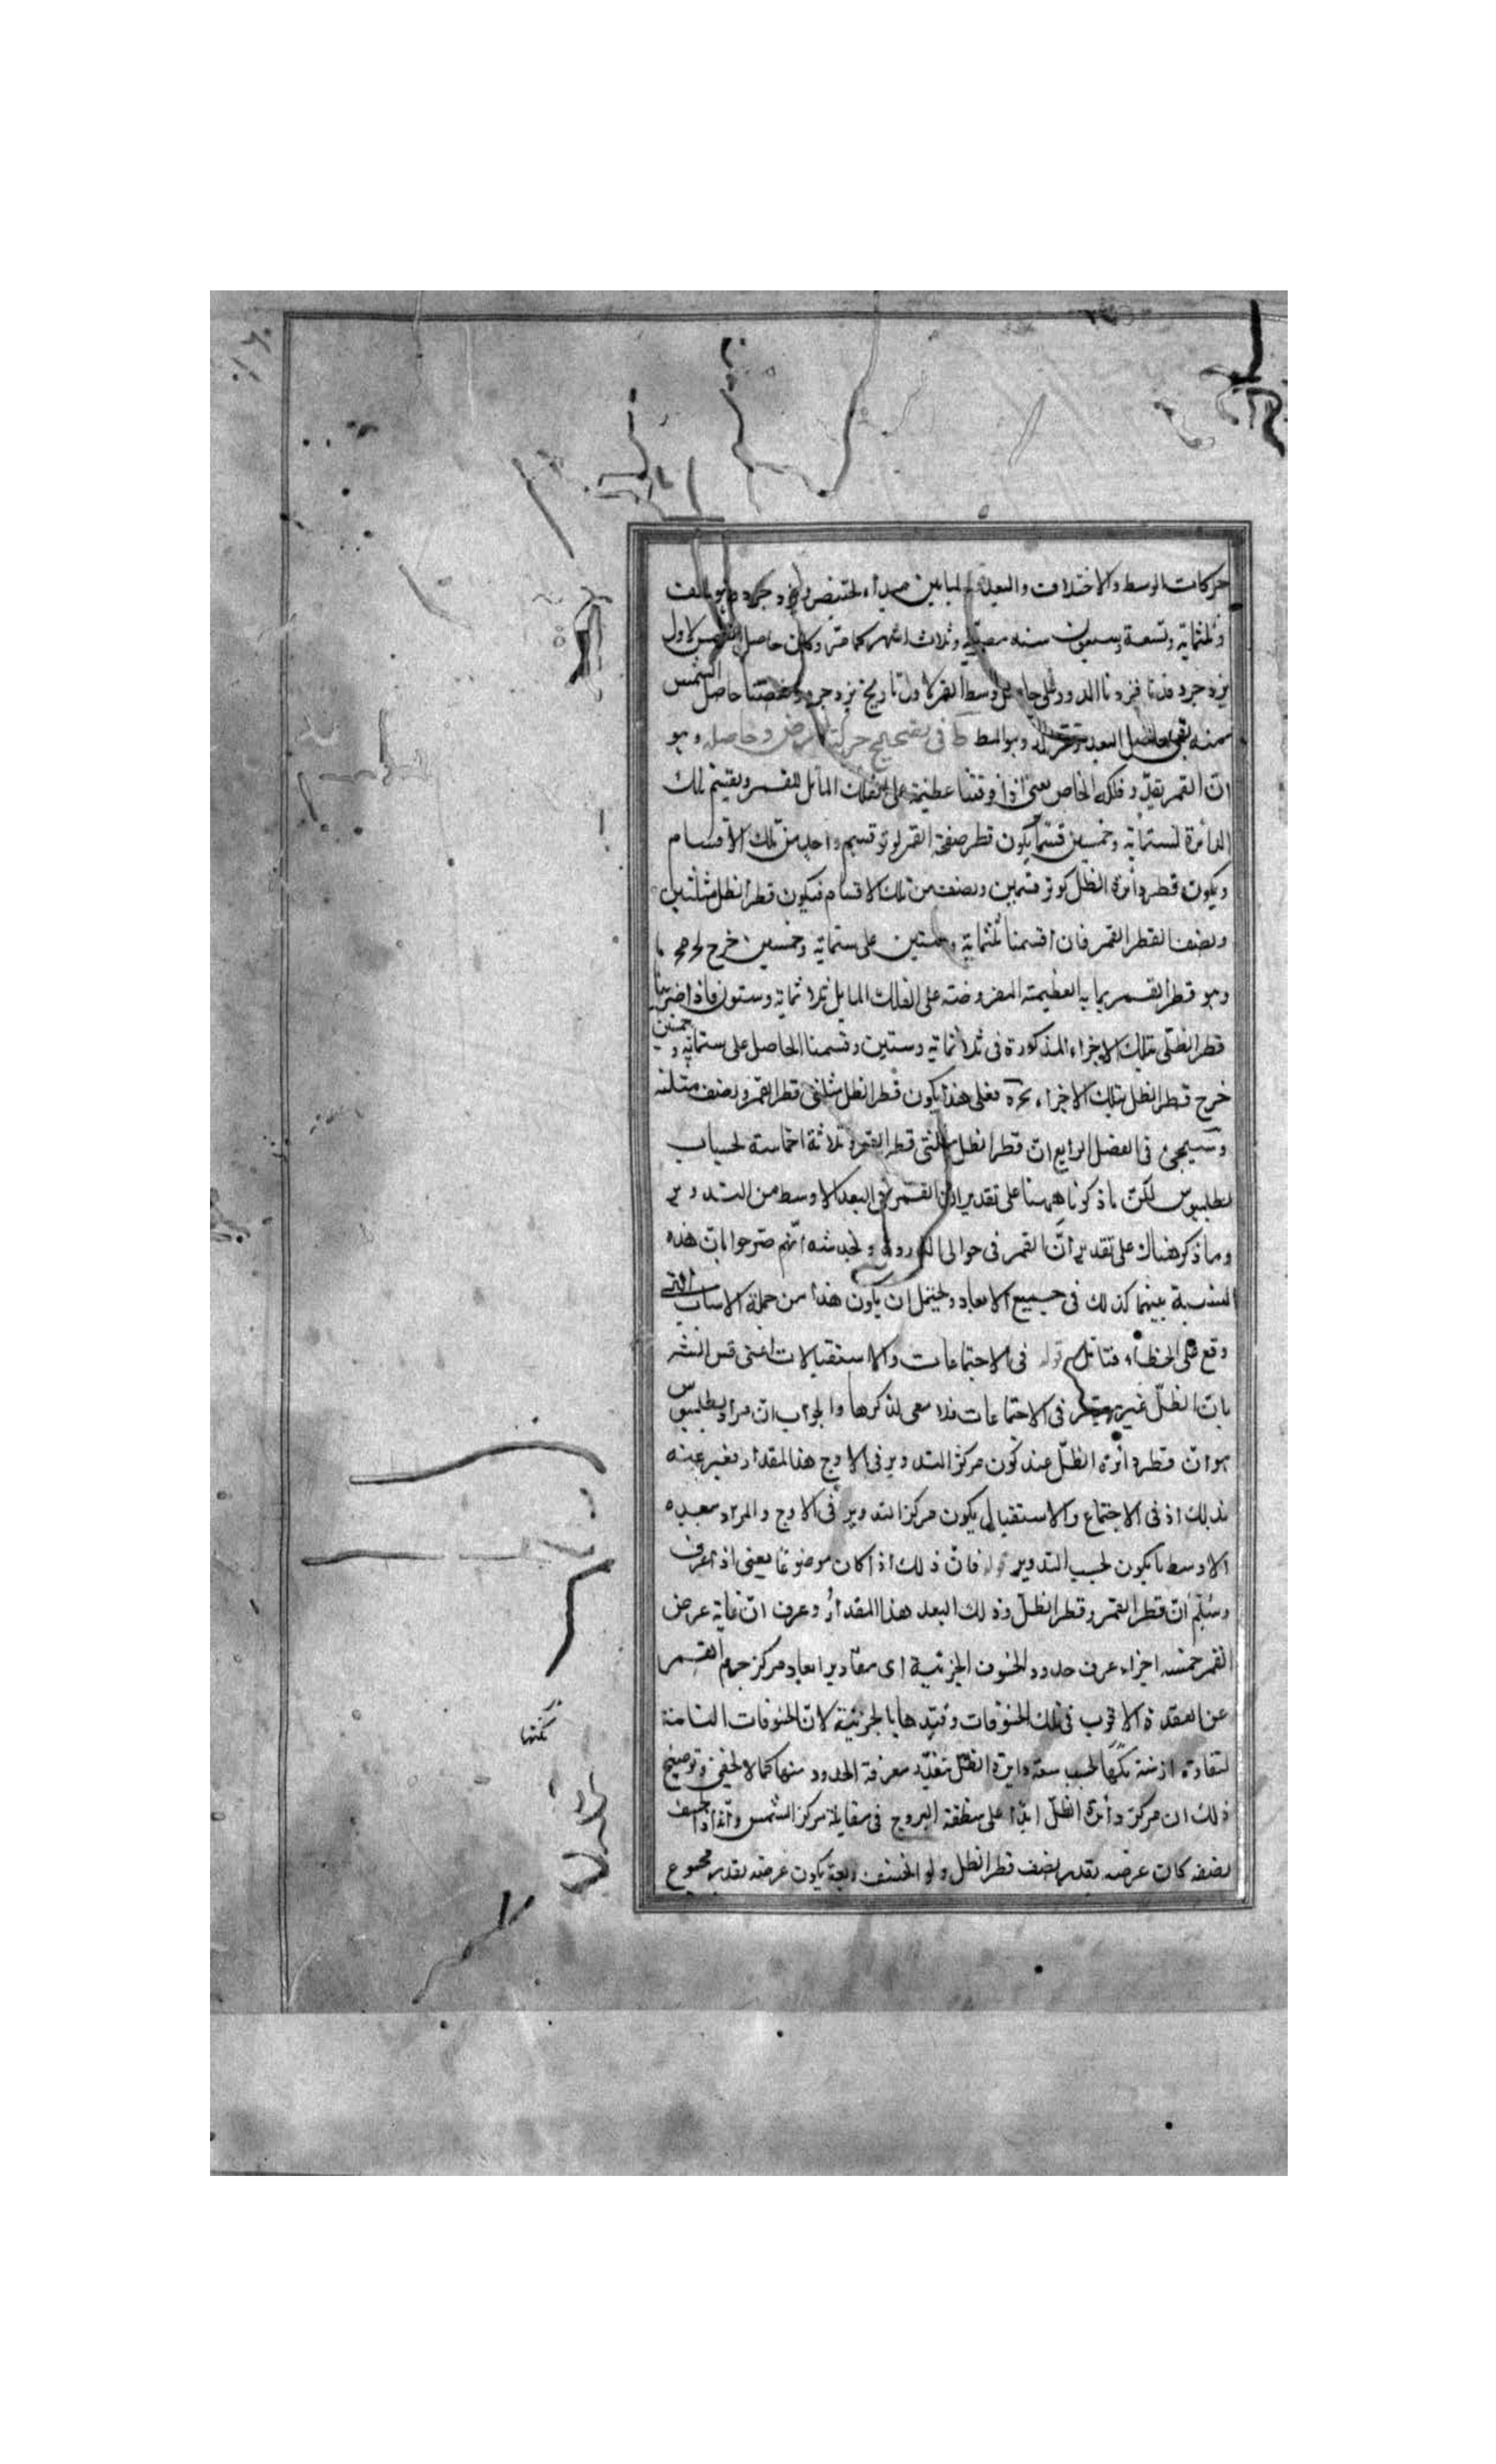 حركات الوسط والاختلاف والبعد لما بين مبدأ بختنصر ويزدجرد وهو الف
وثلثمائة وتسعة وسبعون سنة مصرية وثلاث اشهر كما مر وكان حاصل الشمس لاول
يزدجرد فزدنا الدور على حاصل وسط القمر لاول تاريخ يزدجرد ونقصنا حاصل الشمس
منه بقى حاصل البعد وهو المط فى تصحيح حركة العرض وحاصله وهو
ان القمر يقدر فلكه الخاص يعنى اذا وقعنا عظيمة على الفلك المائل للقمر ويقسم تلك
الدائرة لستمائة وخمسين قسما يكون قطر صفحة القمر لو توقسم واحد من تلك الاقسام
ويكون قطر دائرة الظل كوتر قسمين ونصف من تلك الاقسام فيكون قطر الظل مثلين
ونصفا لقطر القمر فان اقسمنا ثلثماية وستين على ستماية وخمسين خرج
وهو قطر القمر بما به العظيمة المفروضة على الفلك المايل ثلاثماية وستون فاذا ضربنا
قطر الظل بتلك الاجزاء المذكورة فى ثلاثماية وستين وقسمنا الحاصل على ستماية وخمسين
خرج قطر الظل بتلك الاجزاء فعلى هذا يكون قطر الظل مثلى قطر القمر ونصف مثله
وسيجئ فى الفصل الرابع ان قطر الظل مثلى قطر القمر وثلاثة اخماسه لحساب
بطلميوس لكن ما ذكرنا ههنا على تقدير ان القمر فى البعد الاوسط من التدوير
وما ذكر هناك على تقدير ان القمر فى حوالى الذروة ويخدشه انهم صرحوا بان هذه
النسبة بينهما كذلك فى جميع الابعاد ويحتمل ان يكون هذا من جملة الاسباب التى
وقع فى الخطأ فتامل قوله فى الاجتماعات والاستقبالات اعنى قس النشر
بان الظل غير معتبر فى الاجتماعات فلا معى لذكرها والجواب ان مراد بطلميوس
هو ان قطر دائرة الظل عند كون مركز التدوير فى الاوج هذا المقدار فعبر عنه
بذلك اذ فى الاجتماع والاستقبال يكون مركز التدوير فى الاوج والمراد ببعده
الاوسط ما يكون بحسب التدوير قوله فان ذلك اذا كان موضوعا يعنى اذا عرف
وسلم ان قطر القمر وقطر الظل وذلك البعد هذا المقدار وعرف ان غاية عرض
القمر خمسة اجزاء عرف حدود الخسوف الجزئية اى مقادير ابعاد مركز جرم القمر
عن العقدة الاقرب فى تلك الخسوفات وقيدها بالجزئية لان الخسوفات التامة
لتفاوت ازمنة مكثها بحسب سعة دايرة الظل تتعدد معرفة الحدود منها كما لا يخفى وتوضيح
ذلك ان مركز دائرة الظل ابدا على منطقة البروج فى مقابلة مركز الشمس وانه اذا انخسف
نصفه كان عرضه بقدر نصف قطر الظل ولو انخسف ربعه يكون عرضه بقدر مجموع
مكثها